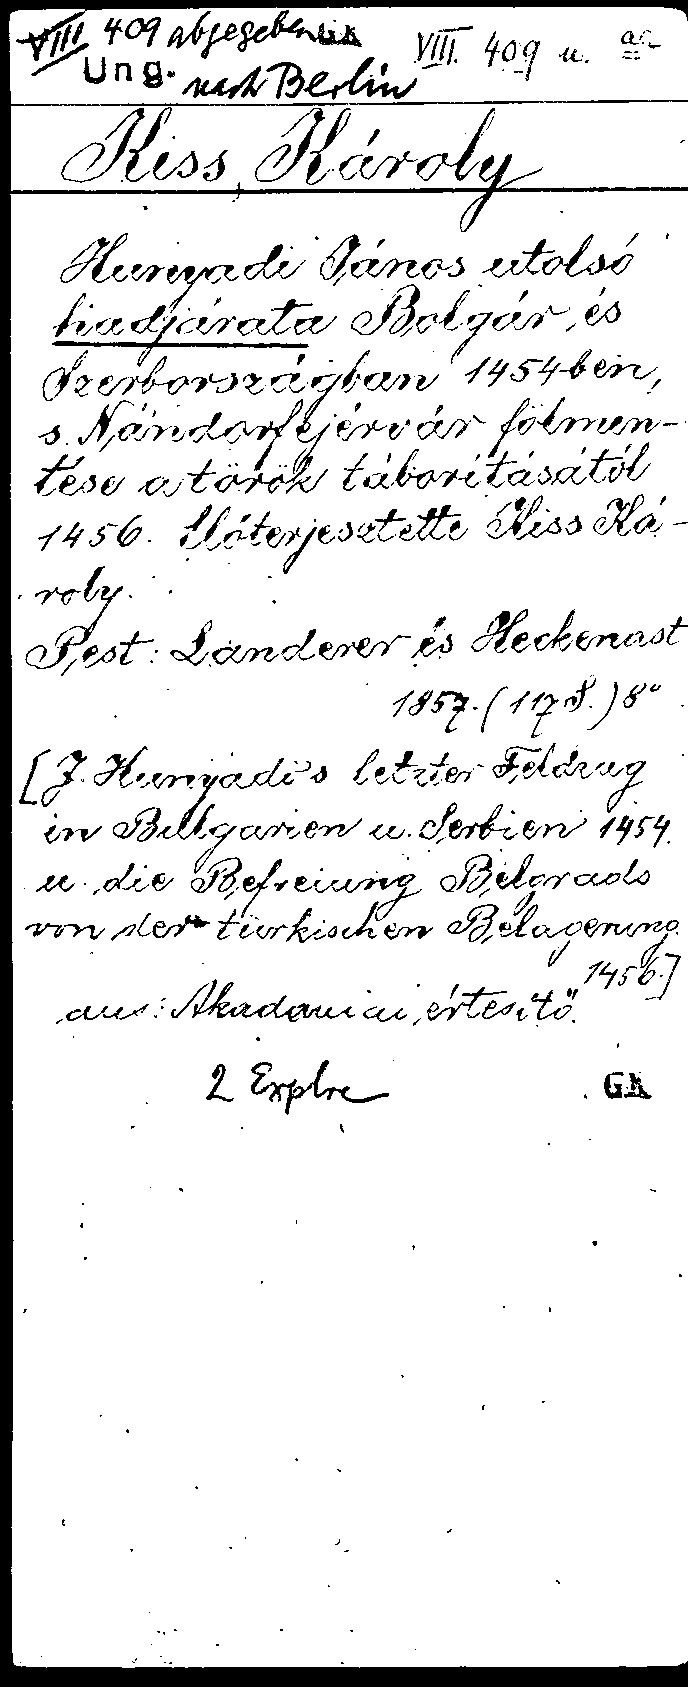 VIII 409 abgegeben
VIII. 409 u. ac
Ung. nach Berlin
Kiss, Károly
Hunyadi János utolsó
hadjárata Bolgár és
Szerbországban 1454ben,
s. Nándorfejérvár fölmen-
tése a török táborításától
1456. Előterjesztette Kiss Ká-
roly.
Pest: Landerer és Heckenast
1857. (117 S.) 8°
[J. Hunyadi's letzter Feldzug
in Bulgarien u. Serbien 1454.
u. die Befreiung Belgrads
von der türkischen Belagerung.
1456.]
aus: Akademiai értesítő.
2 Explre
GK